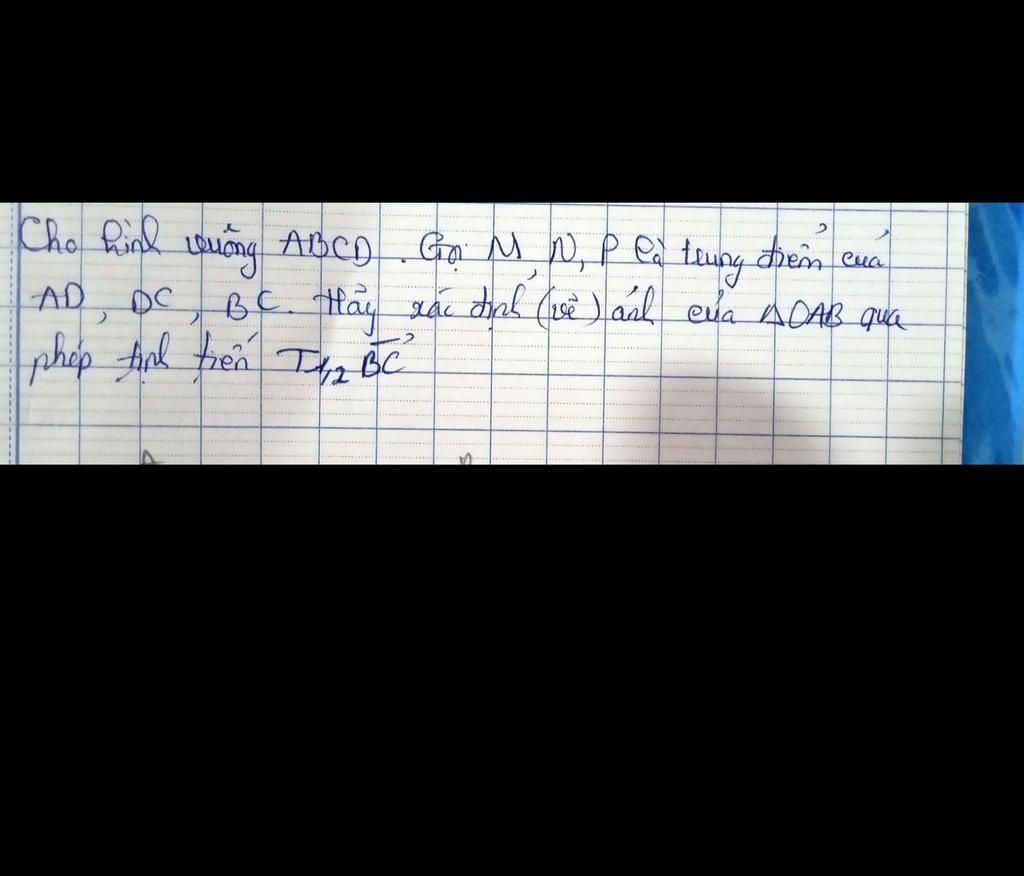 Cho hình vuông ABCD. Gọi M, N, P là trung điểm của
AD, DC, BC. Hãy xác định (vẽ) ảnh của ΔOAB qua
phép tịnh tiến T1/2 BC